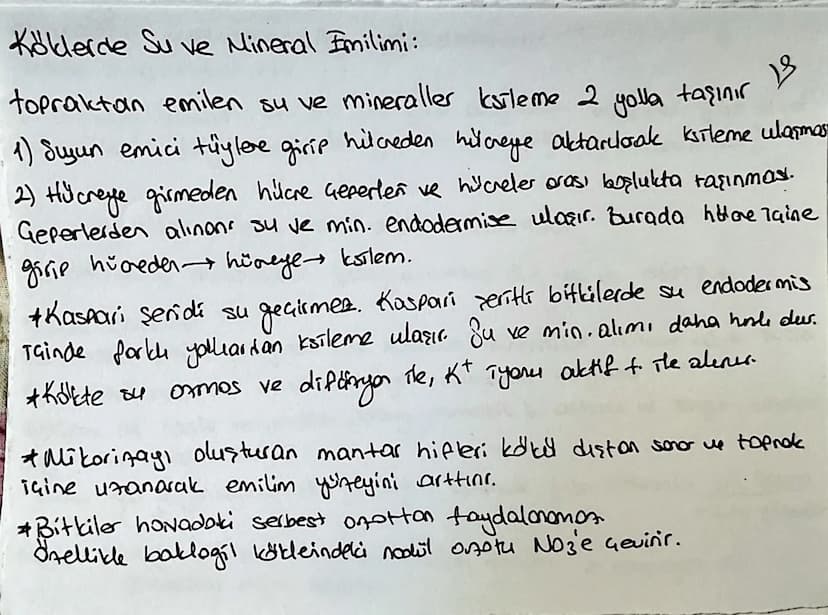 Köklerde Su ve Mineral Emilimi:
13
topraktan emilen su ve mineraller ksileme 2 yolla taşınır
1) Suyun emici tüylere girip hücreden hücreye aktarılarak ksileme ulaşması
2) Hücreye girmeden hücre çeperleri ve hücreler arası boşlukta taşınması.
Çeperlerden alınan su ve min. endodermise ulaşır. Burada hücre içine
girip hücreden → hücreye → ksilem.
*Kaspari şeridi su geçirmez. Kaspari şeritli bitkilerde su endodermis
içinde farklı yollardan ksileme ulaşır. Su ve min. alımı daha hızlıdır.
*Kökte su ozmos ve difüzyon ile, K+ iyonu aktif t. ile alınır.
*Mikorizayı oluşturan mantar hifleri kökü dıştan sarar ve toprak
içine uzanarak emilim yüzeyini arttırır.
*Bitkiler havadaki serbest azottan faydalanamaz
Özellikle baklagil köklerindeki nodül azotu NO3'e çevirir.